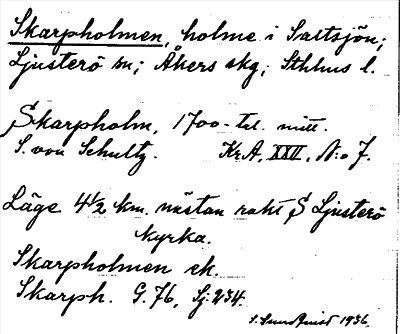 Skarpholmen, holme i Saltsjön;
Ljusterö sn; Åkers skg; Sthlms l.
Skarpholm, 1700-tal. mitt.
S. von Schultz. KrA, XXII, N:o 7.
Läge 4½ km. nästan rakt S Ljusterö
kyrka.
Skarpholmen ek.
Skarph. G. 76, Sj: 234.
S. Sundquist 1936.